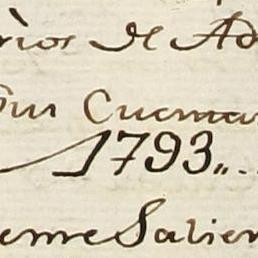 rios de Ad
sus Cuenta
1793,,..
emre Salien